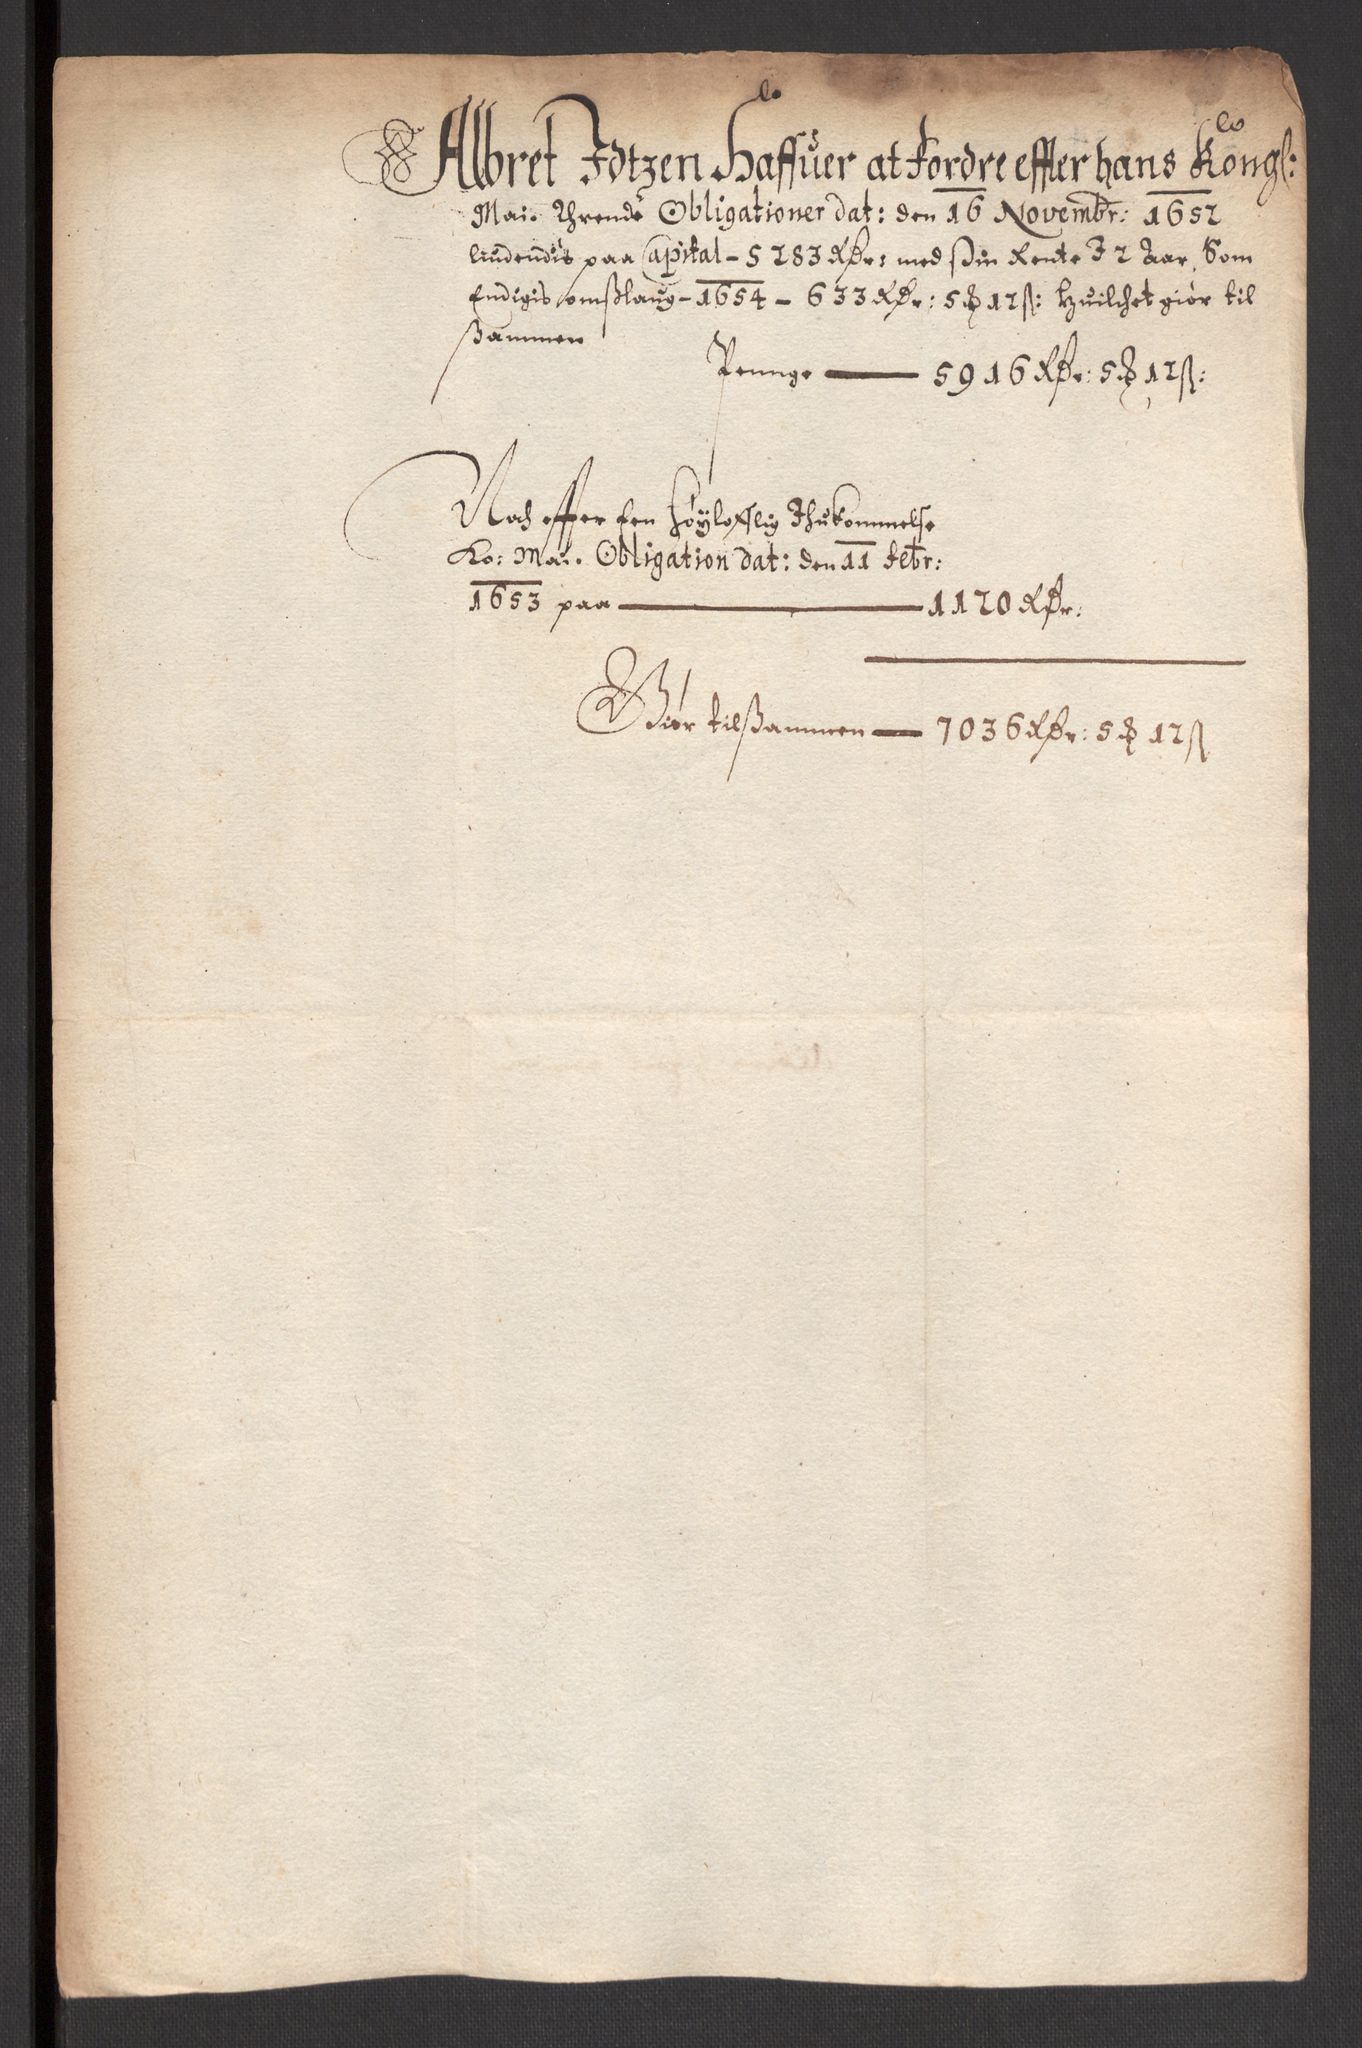 Albret Idtzen Haffuer at fordre effter hans Kongl:
Mai. Thrende Obligationer dat: den 16 Novembr: 1652
liudendis paa Capital - 5283 Rdr: med ßin Rente I 2 Aar, Som
Endigis omßlaug - 1654 - 633 Rdr: 5 ℳ 12 ß: Huilchet giør til
ßammen
Penge — 5916 Rdr: 5 ℳ 12 ß:
Noch effter Een høylofflig Ihukommelse
Ko: Mai. Obligation dat: den 11 Febr:
1653 paa — 1120 Rdr:
Giør tilßammen — 7036 Rdr: 5 ℳ 12 ß